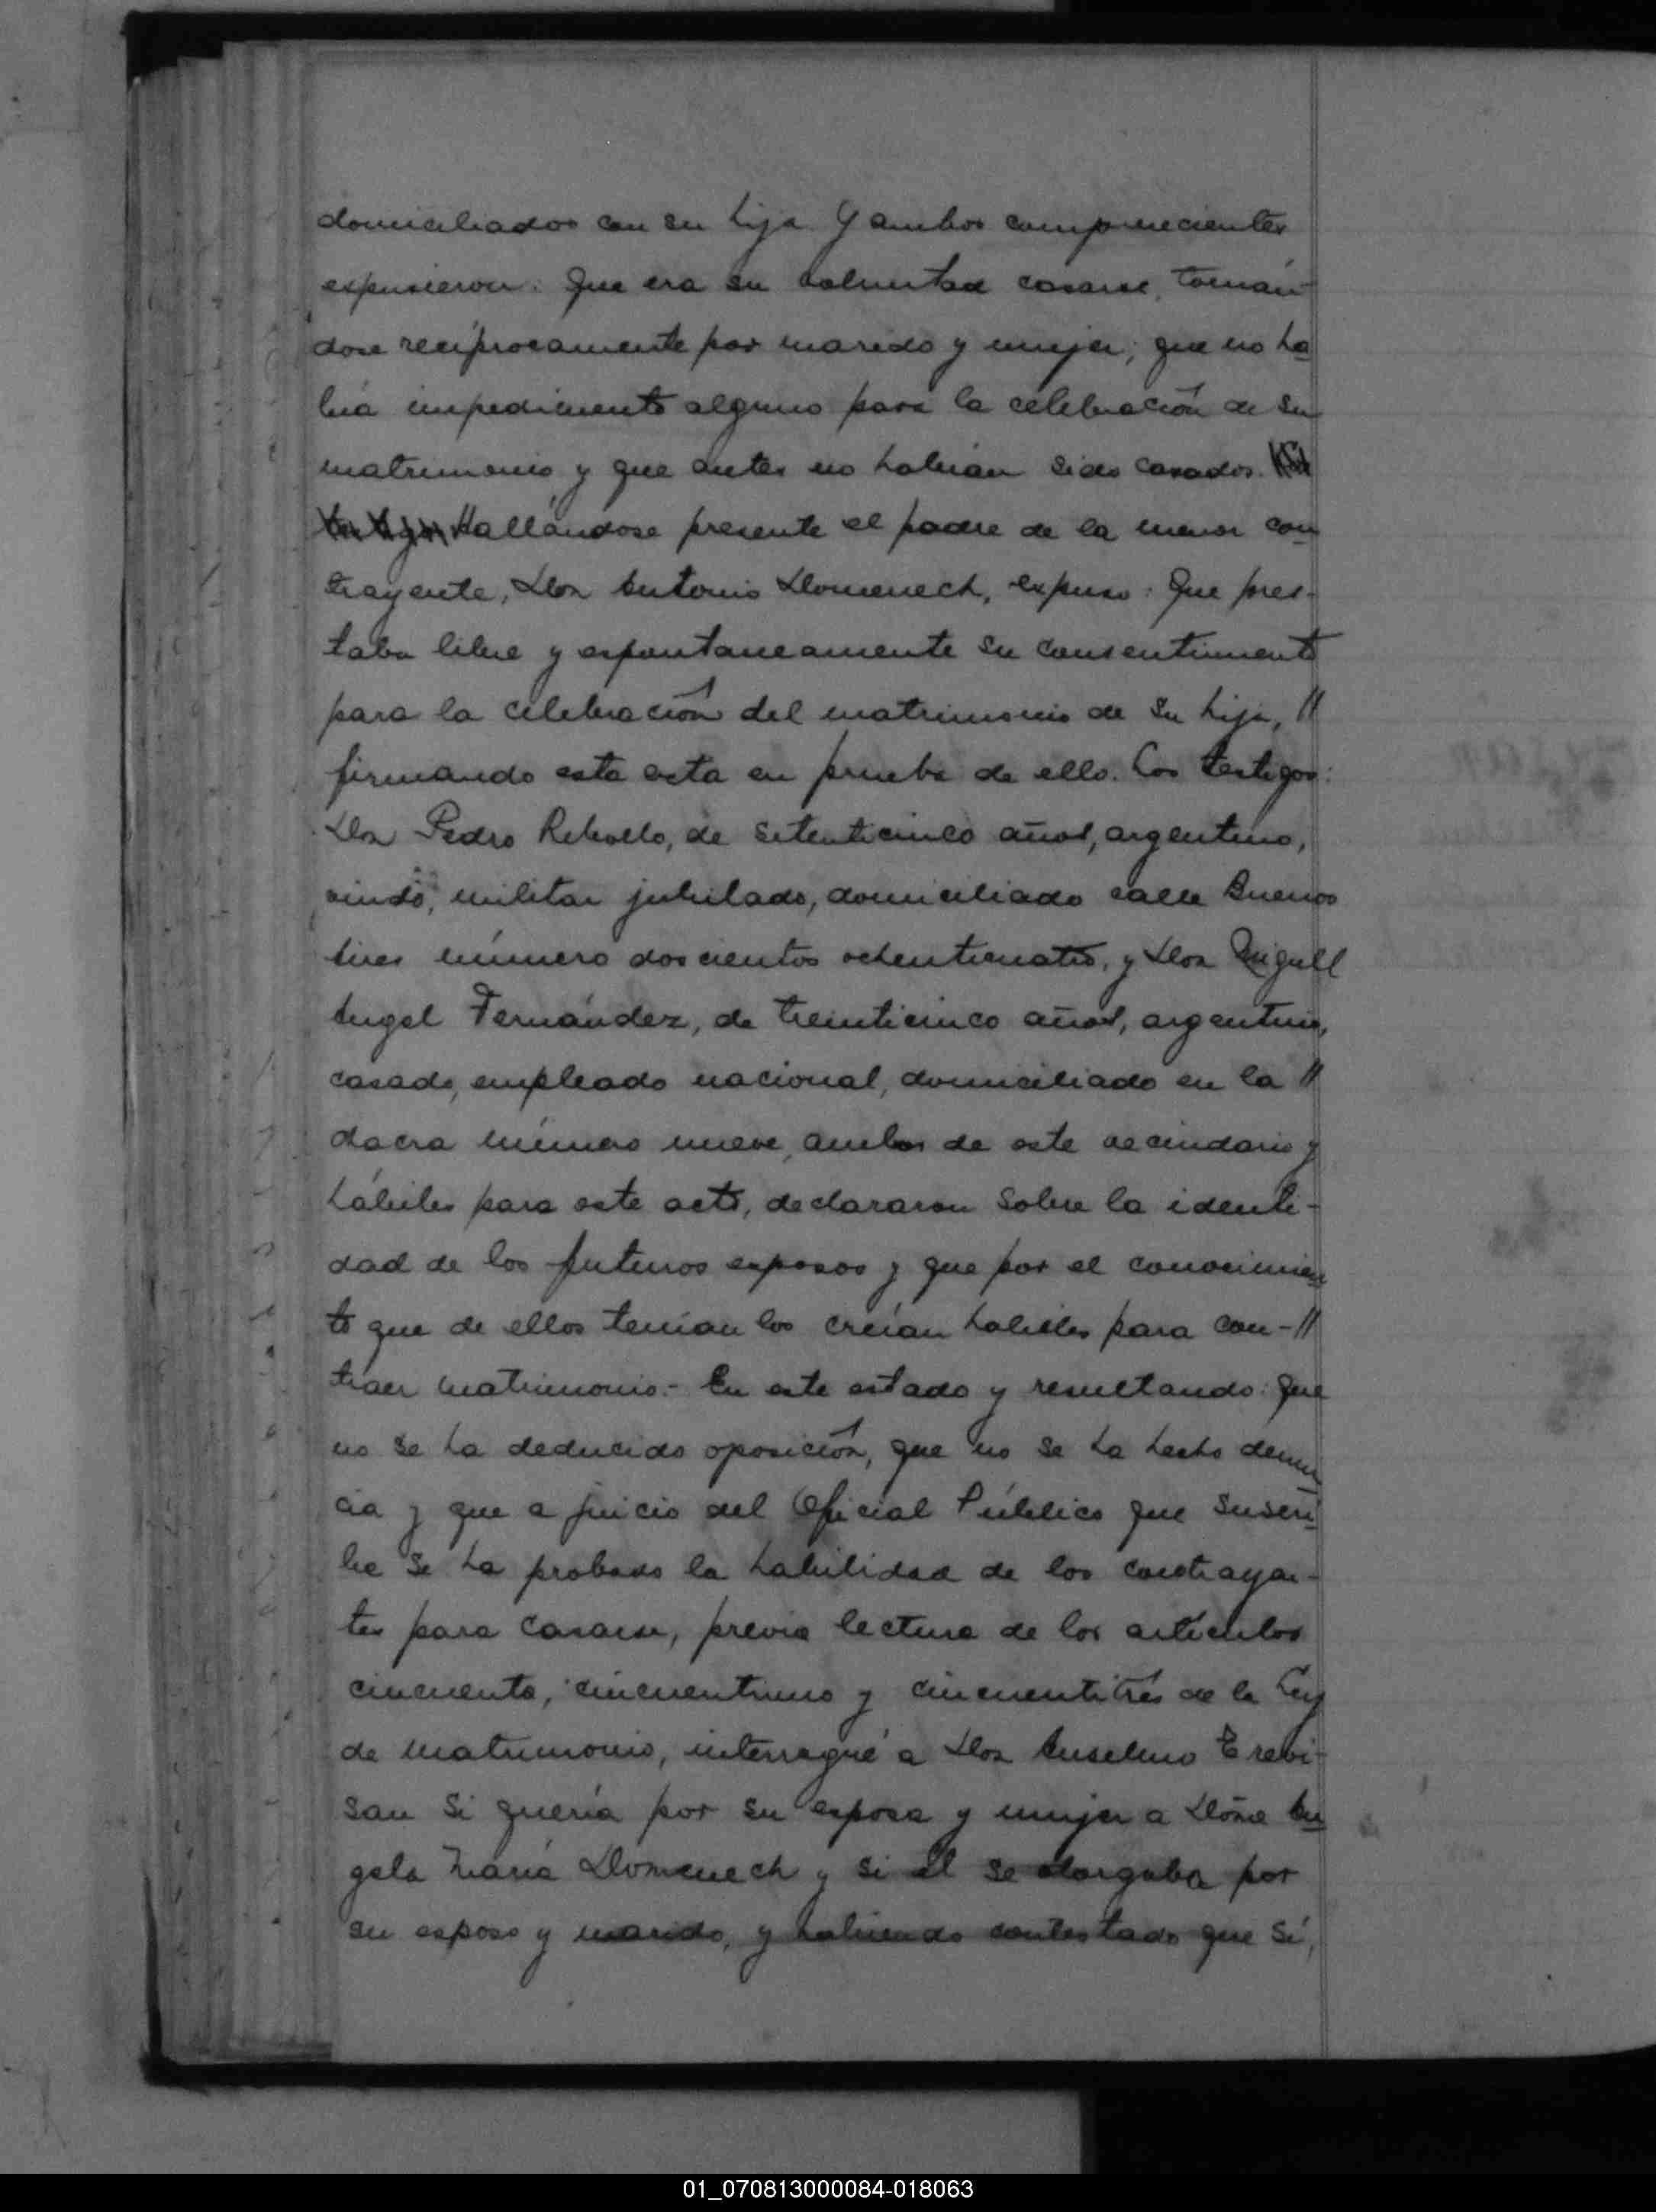 domiciliados con su hija. Y ambos comparecientes
expusieron: Que era su voluntad casarse, tomán-
dose recíprocamente por marido y mujer; que no ha
bía impedimento alguno para la celebración de su
matrimonio y que antes no habían sido casados.
Hallándose presente el padre de la menor con
trayente, Don Antonio Domenech, expuso: Que pres-
taba libre y espontaneamente su consentimiento
para la celebración del matrimonio de su hija, //
firmando esta acta en prueba de ello. Los testigos:
Don Pedro Rebollo, de setenticinco años, argentino,
viudo, militar jubilado, domiciliado calle Buenos
Aires número doscientos ochenticuatro, y Don Miguel
Angel Fernández, de treinticinco años, argentino,
casado, empleado nacional, domiciliado en la //
chacra número nueve, ambos de este vecindario y
hábiles para este acto, declararon sobre la identi-
dad de los futuros esposos y que por el conocimien
to que de ellos tenían los creían hábiles para con-//
traer matrimonio.- En este estado y resultando: que
no se ha deducido oposición, que no se ha hecho denun
cia y que a juicio del Oficial Público que suscri
be se ha probado la habilidad de los contrayen-
tes para casarse, previa lectura de los artículos
cincuenta, cincuentiuno y cincuentitrés de la Ley
de matrimonio, interrogué a Don Anselmo Trevi-
san si quería por su esposa y mujer a Doña An
gela María Domenech y si él se otorgaba por
su esposo y marido, y habiendo contestado que sí,
01_070813000084-018063